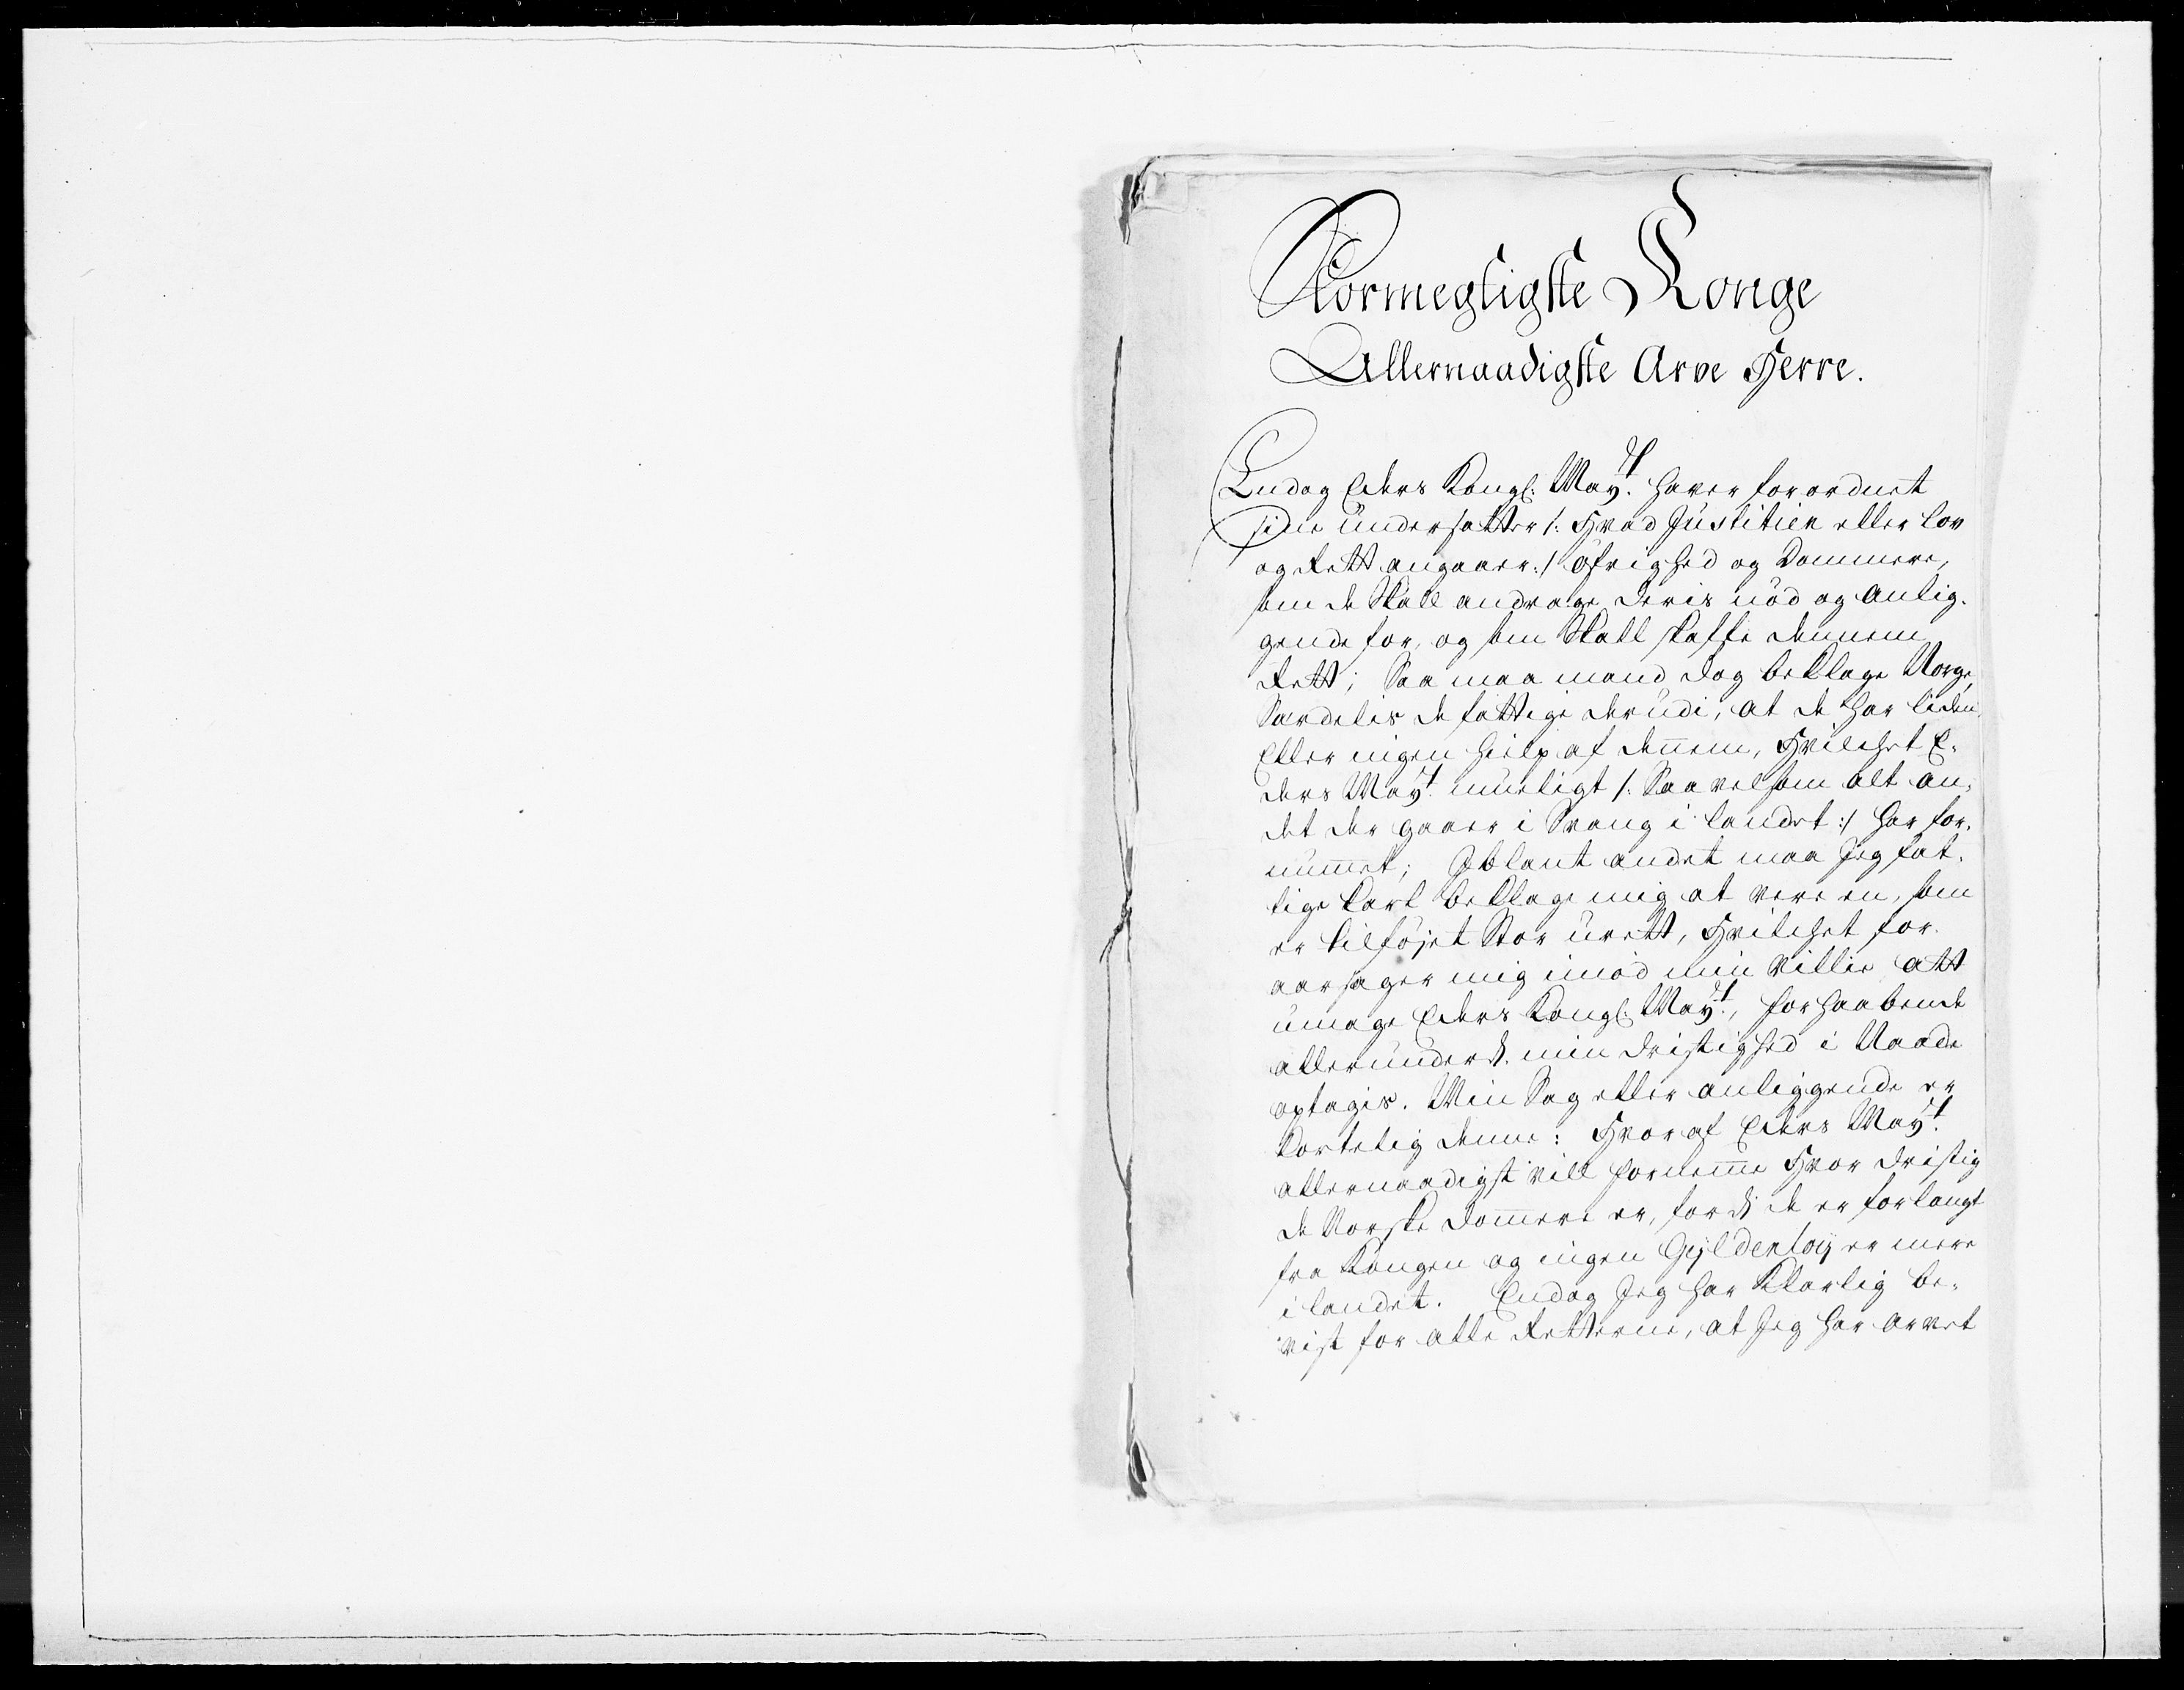 Stormegtigste Konge
Allernaadigste Arve Herre.
Endog Eders Kongl: Mayt. haver forordnet
sine undersatter /: Hvad Justitien eller lov
og Rett angaaer :/ öfrighed og Dommere,
som de Skall andrage deris nöd og anlig-
gende for, og som Skall skaffe dennem
Rett; Saa maa mand dog beklage Norge,
Særdelis de fattige derudi, at de har liden
Eller ingen hielp af dennem, Hvilchet E-
ders Mayt. mueligt /: Saa vel som alt an-
det der gaaer i Svang i landet :/ har for-
nummet; Iblant andet maa Jeg fat-
tige Karl beklage mig at vere en, som
er tilföjet Stor urett, Hvilchet for-
aarsager mig imod min villie att
umage Eders Kongl: Mayt., forhaabende
allerunderd. min dristighed i Naade
optagis. Min Sag eller anliggende er
kortelig denne: Hvoraf Eders Mayt.
allernaadigst vill fornemme Hvor dristig
de Norske dommere er, fordi de er forlangt
fra Kongen og ingen Gyldenlöy er mere
i landet. Endog Jeg har Klarlig be-
vist for alle Retterne, at Jeg har arvet